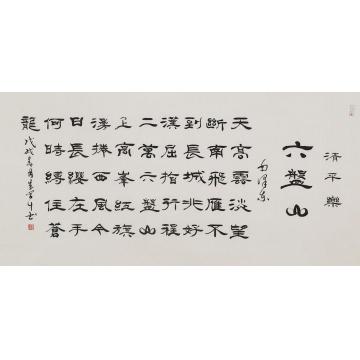 清平樂
六盤山
毛澤東
天高雲淡望
斷南飛雁不
到長城非好
漢屈指行程
二萬六盤山
上高峯紅旗
漫捲西風今
日長纓在手
何時縛住蒼
龍
戊戌